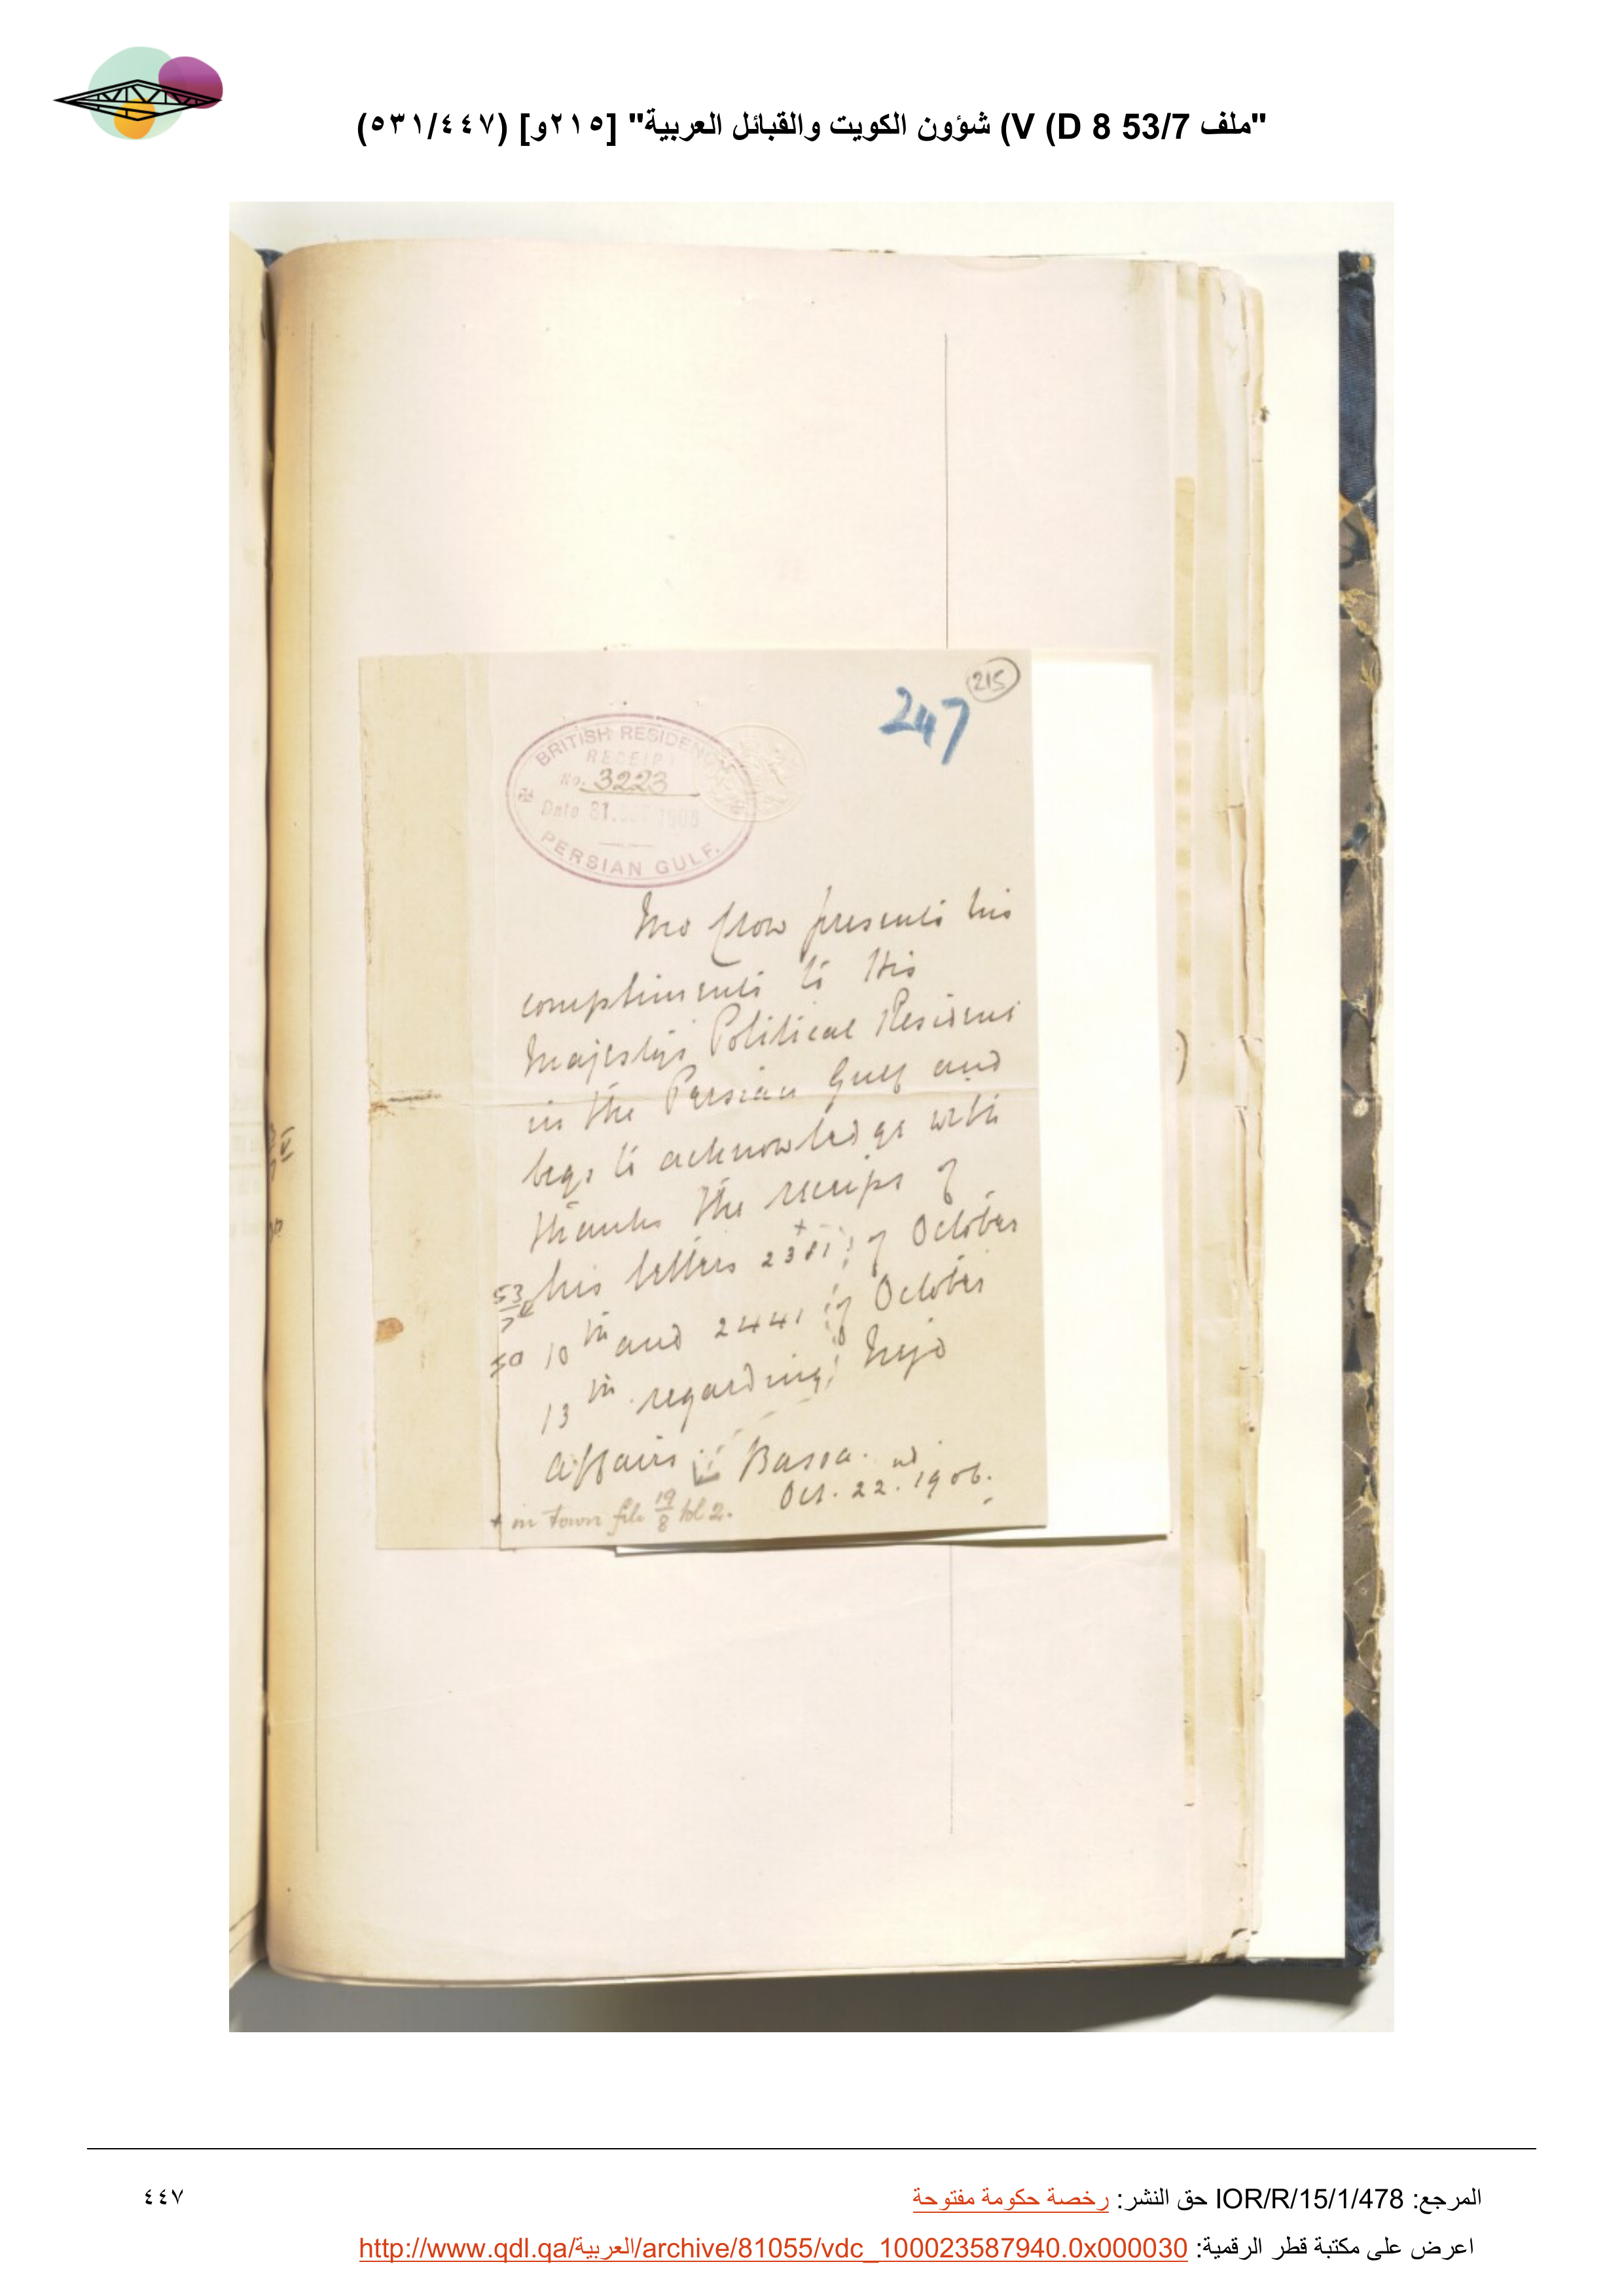 "ملف 53/7 V (D 8) شؤون الكويت والقبائل العربية" [٢١٥و] (٥٣١/٤٤٧)
215
247
BRITISH RESIDENCY
RECEIPT
No. 3223
Date 31. OCT 1906
PERSIAN GULF.
Mr Crow presents his
compliments to His
Majesty's Political Resident
in the Persian Gulf and
begs to acknowledge with
thanks the receipt of
his letters 2381 of October
53/7
10th and 2441 of October
13th regarding Nejd
Affairs
Basra.
Oct. 22nd 1906.
+ in Town file 19/8 Vol 2.
المرجع: IOR/R/15/1/478 حق النشر: رخصة حكومة مفتوحة
٤٤٧
اعرض على مكتبة قطر الرقمية: http://www.qdl.qa/العربية/archive/81055/vdc_100023587940.0x000030